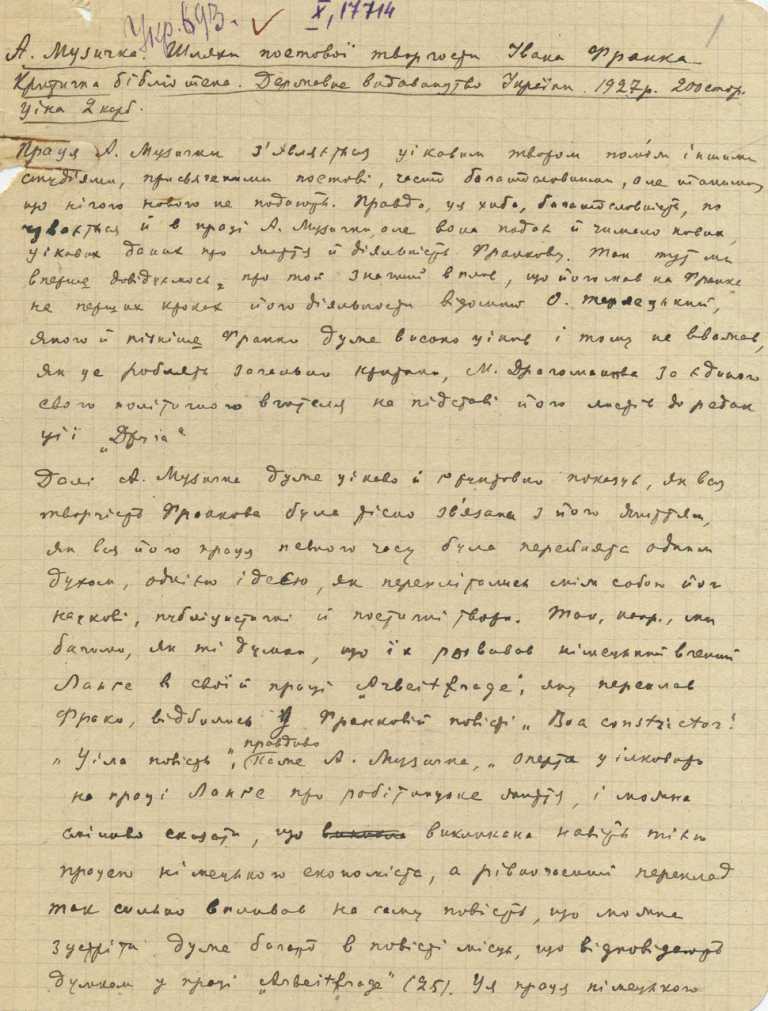 Укр. 693. X, 17714 1
А. Музичка. Шляхи поетової творчости Івана Франка.
Критична бібліотека. Державне видавництво України. 1927 р. 200 стор.
Ціна 2 карб.
Праця А. Музички з'являється цікавим твором поміж іншими
студіями, присвяченими поетові, часто багатословними, але такими,
що нічого нового не подають. Правда, ця хиба, багатословність, по
чувається й в праці А. Музички, але вона подає й чимало нових,
цікавих даних про життя й діяльність Франкову. Так тут ми
вперше довідуємось про той значний вплив, що його мав на Франка
на перших кроках його діяльности відомий О. Терлецький,
якого й пізніше Франко дуже високо цінив і тому не вважав,
як це роблять загально критики, М. Драгоманова за єдиного
свого політичного вчителя на підставі його листів до редак
ції „Друга“
Далі А. Музичка дуже цікаво й ґрунтовно показує, як вся
творчість Франкова була тісно зв'язана з його життям,
як вся його праця певного часу була перейнята одним
духом, однією ідеєю, як переплітались між собою його
наукові, публіцистичні й поетичні твори. Так, напр., ми
бачимо, як ті думки, що їх розвивав німецький вчений
Ланґе в своїй праці „Arbeitfrage“, яку переклав
Франко, відбились у Франковій повісті „Boa constrictor“.
„Ціла повість“, правдиво каже А. Музичка, „оперта цілковито
на праці Ланґе про робітницьке життя, і можна
сміливо сказати, що викликана навіть тією
працею німецького економіста, а рівночасний переклад
так сильно впливав на саму повість, що можна
зустріти дуже багато в повісті місць, що відповідають
думкам у праці „Arbeitfrage“ (25). Ця праця німецького